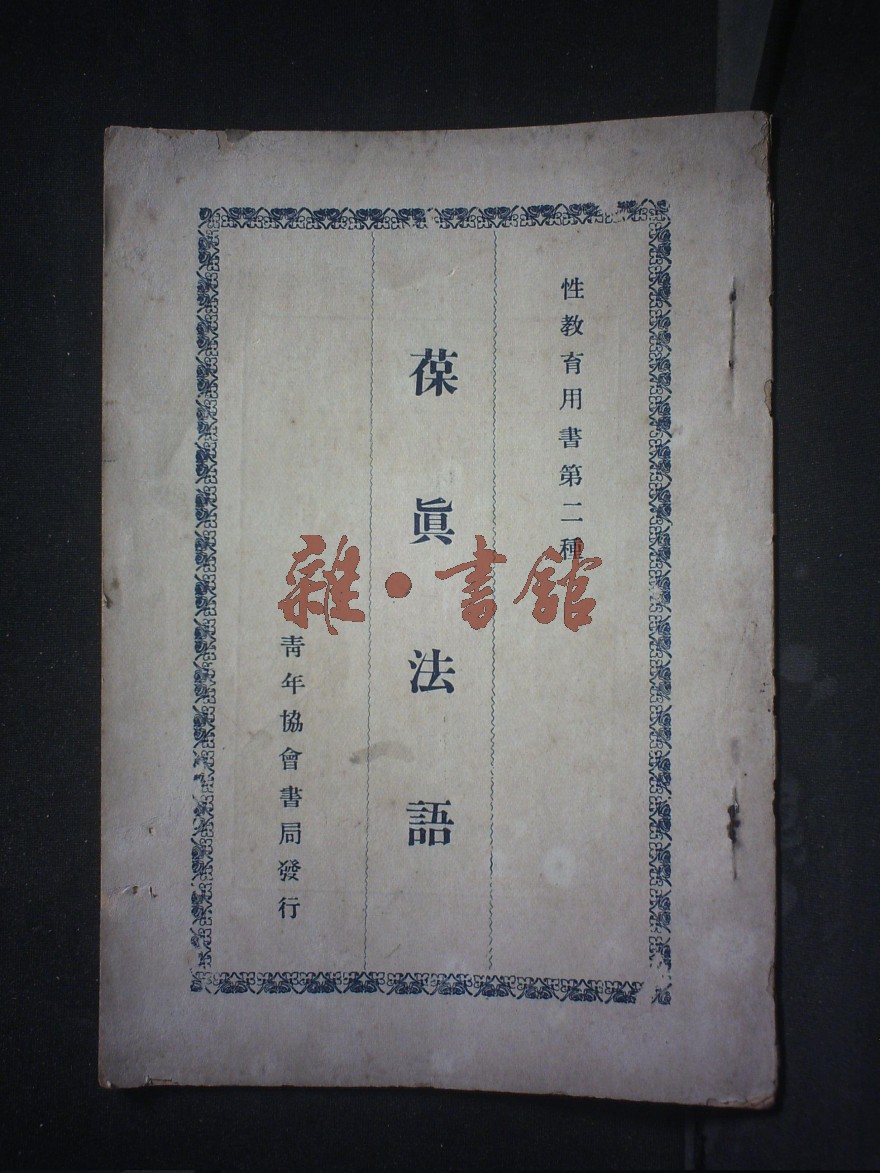 性教育用書第二種
葆眞法語
靑年協會書局發行
雜·書館